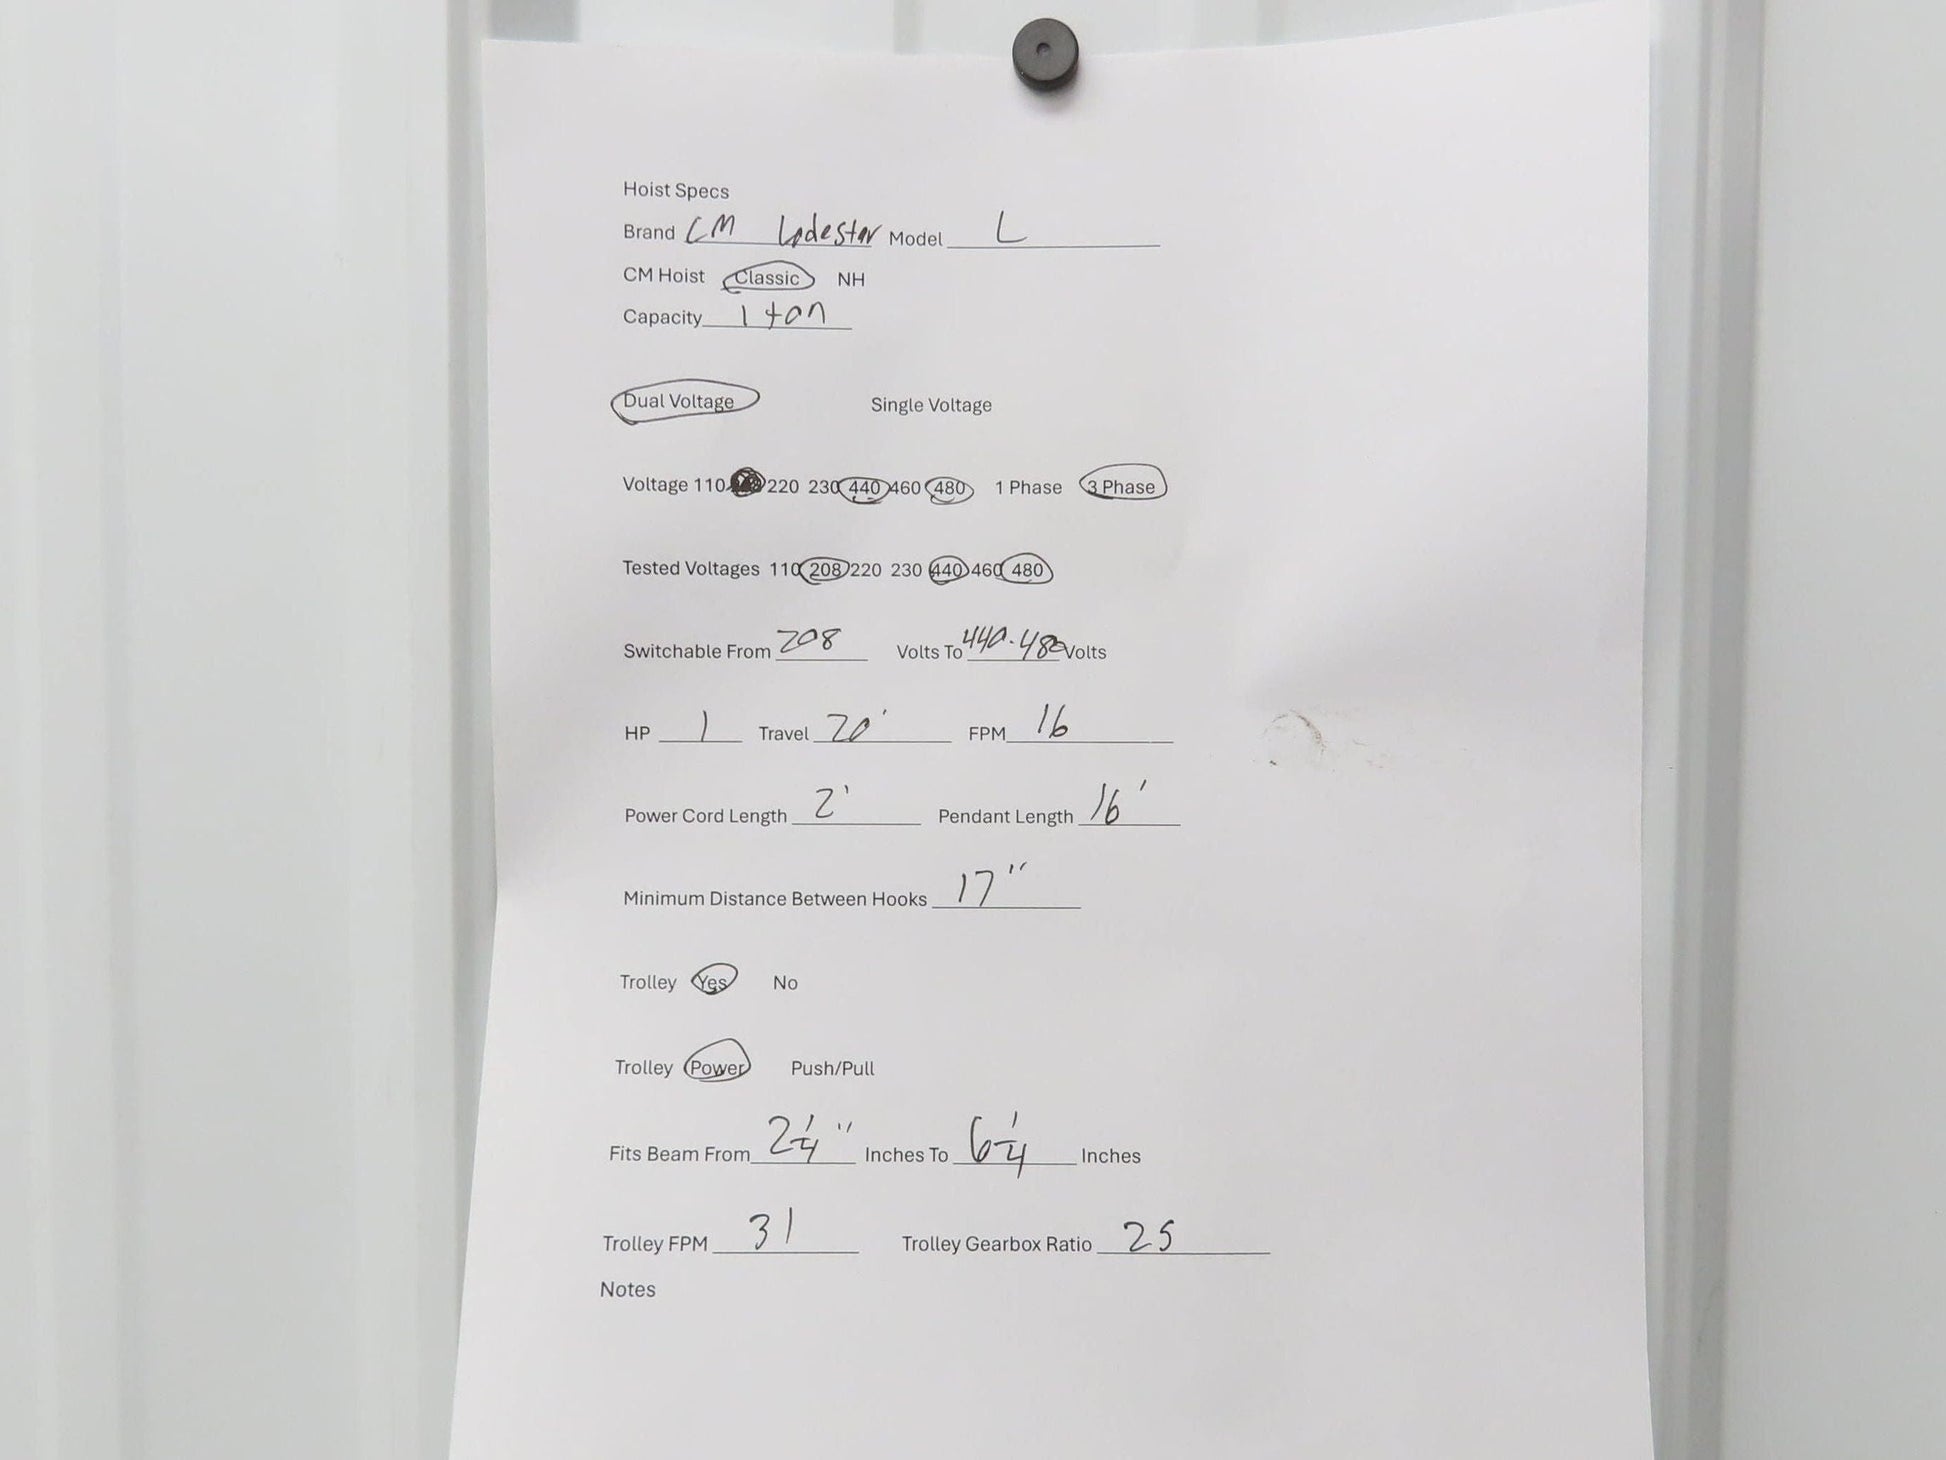 Hoist Specs
Brand CM Lodestar Model L
CM Hoist Classic NH
Capacity 1 ton
Dual Voltage Single Voltage
Voltage 110 220 230 440 460 480 1 Phase 3 Phase
Tested Voltages 110 208 220 230 440 460 480
Switchable From 208 Volts To 440-480 Volts
HP 1 Travel 20' FPM 16
Power Cord Length 2' Pendant Length 16'
Minimum Distance Between Hooks 17"
Trolley Yes No
Trolley Power Push/Pull
Fits Beam From 2 1/4" Inches To 6 1/4 Inches
Trolley FPM 31 Trolley Gearbox Ratio 25
Notes